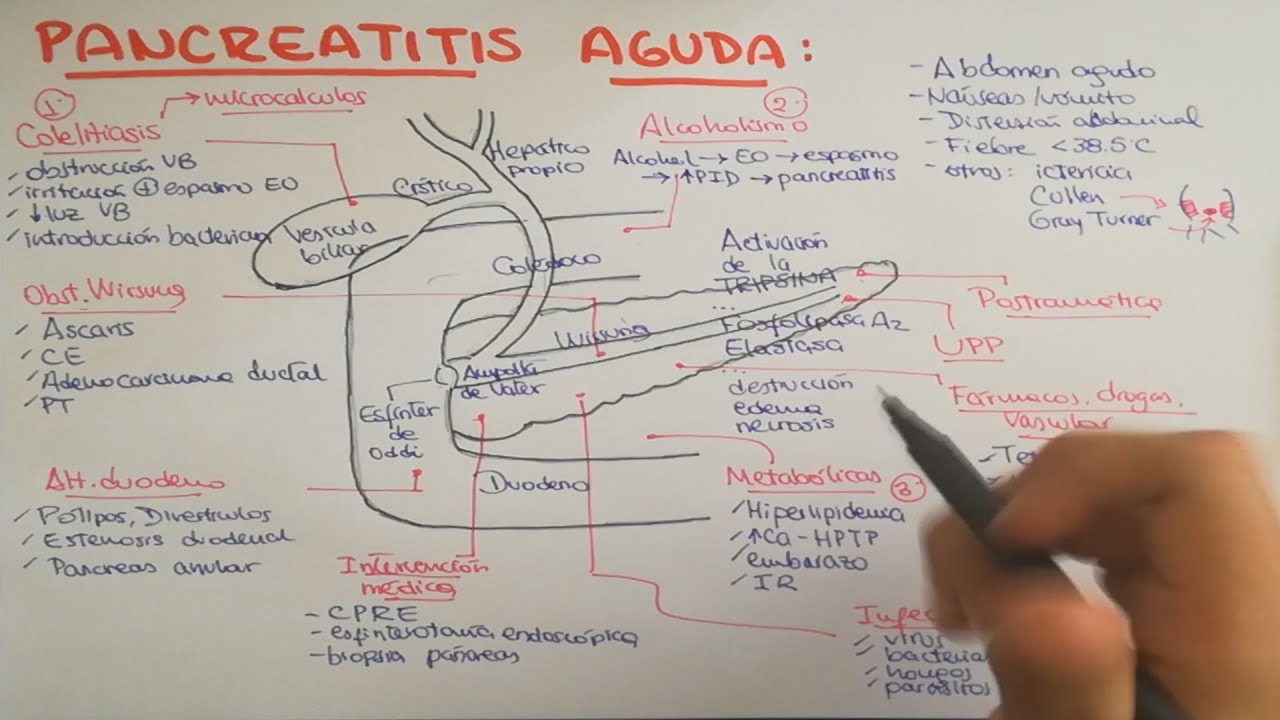 PANCREATITIS AGUDA:
1.
→ microcalculos
Colelitiasis
✓ obstrucción VB
✓ irritación ⊕ espasmo EO
✓ ↓ luz VB
✓ introducción bacteriana
Obst. Wirsung
✓ Ascaris
✓ CE
✓ Adenocarcinoma ductal
✓ PT
Alt. duodeno
✓ Polipos, Diverticulos
✓ Estenosis duodenal
✓ Pancreas anular
Hepático
propio
Cístico
Vesicula
biliar
Colédoco
Wirsung
Ampolla
de Vater
Esfinter
de
Oddi
Duodeno
Intervención
médica
- CPRE
- esfinterotomía endoscópica
- biopsia páncreas
2.
Alcoholismo
Alcohol → EO → espasmo
→ ↑PID → pancreatitis
Activación
de la
TRIPSINA
...
Fosfolipasa A2
Elastasa
...
destrucción
edema
necrosis
Metabólicas 3
✓ Hiperlipidemia
✓ ↑Ca - HPTP
✓ embarazo
✓ IR
- Abdomen agudo
- Náuseas/vomito
- Distensión abdominal
- Fiebre < 38.5°C
- otros: ictericia
Cullen →
Gray Turner
Postraumática
UPP
Fármacos, drogas,
Vascular
✓ virus
✓ bacteria
✓ hongos
✓ parásitos